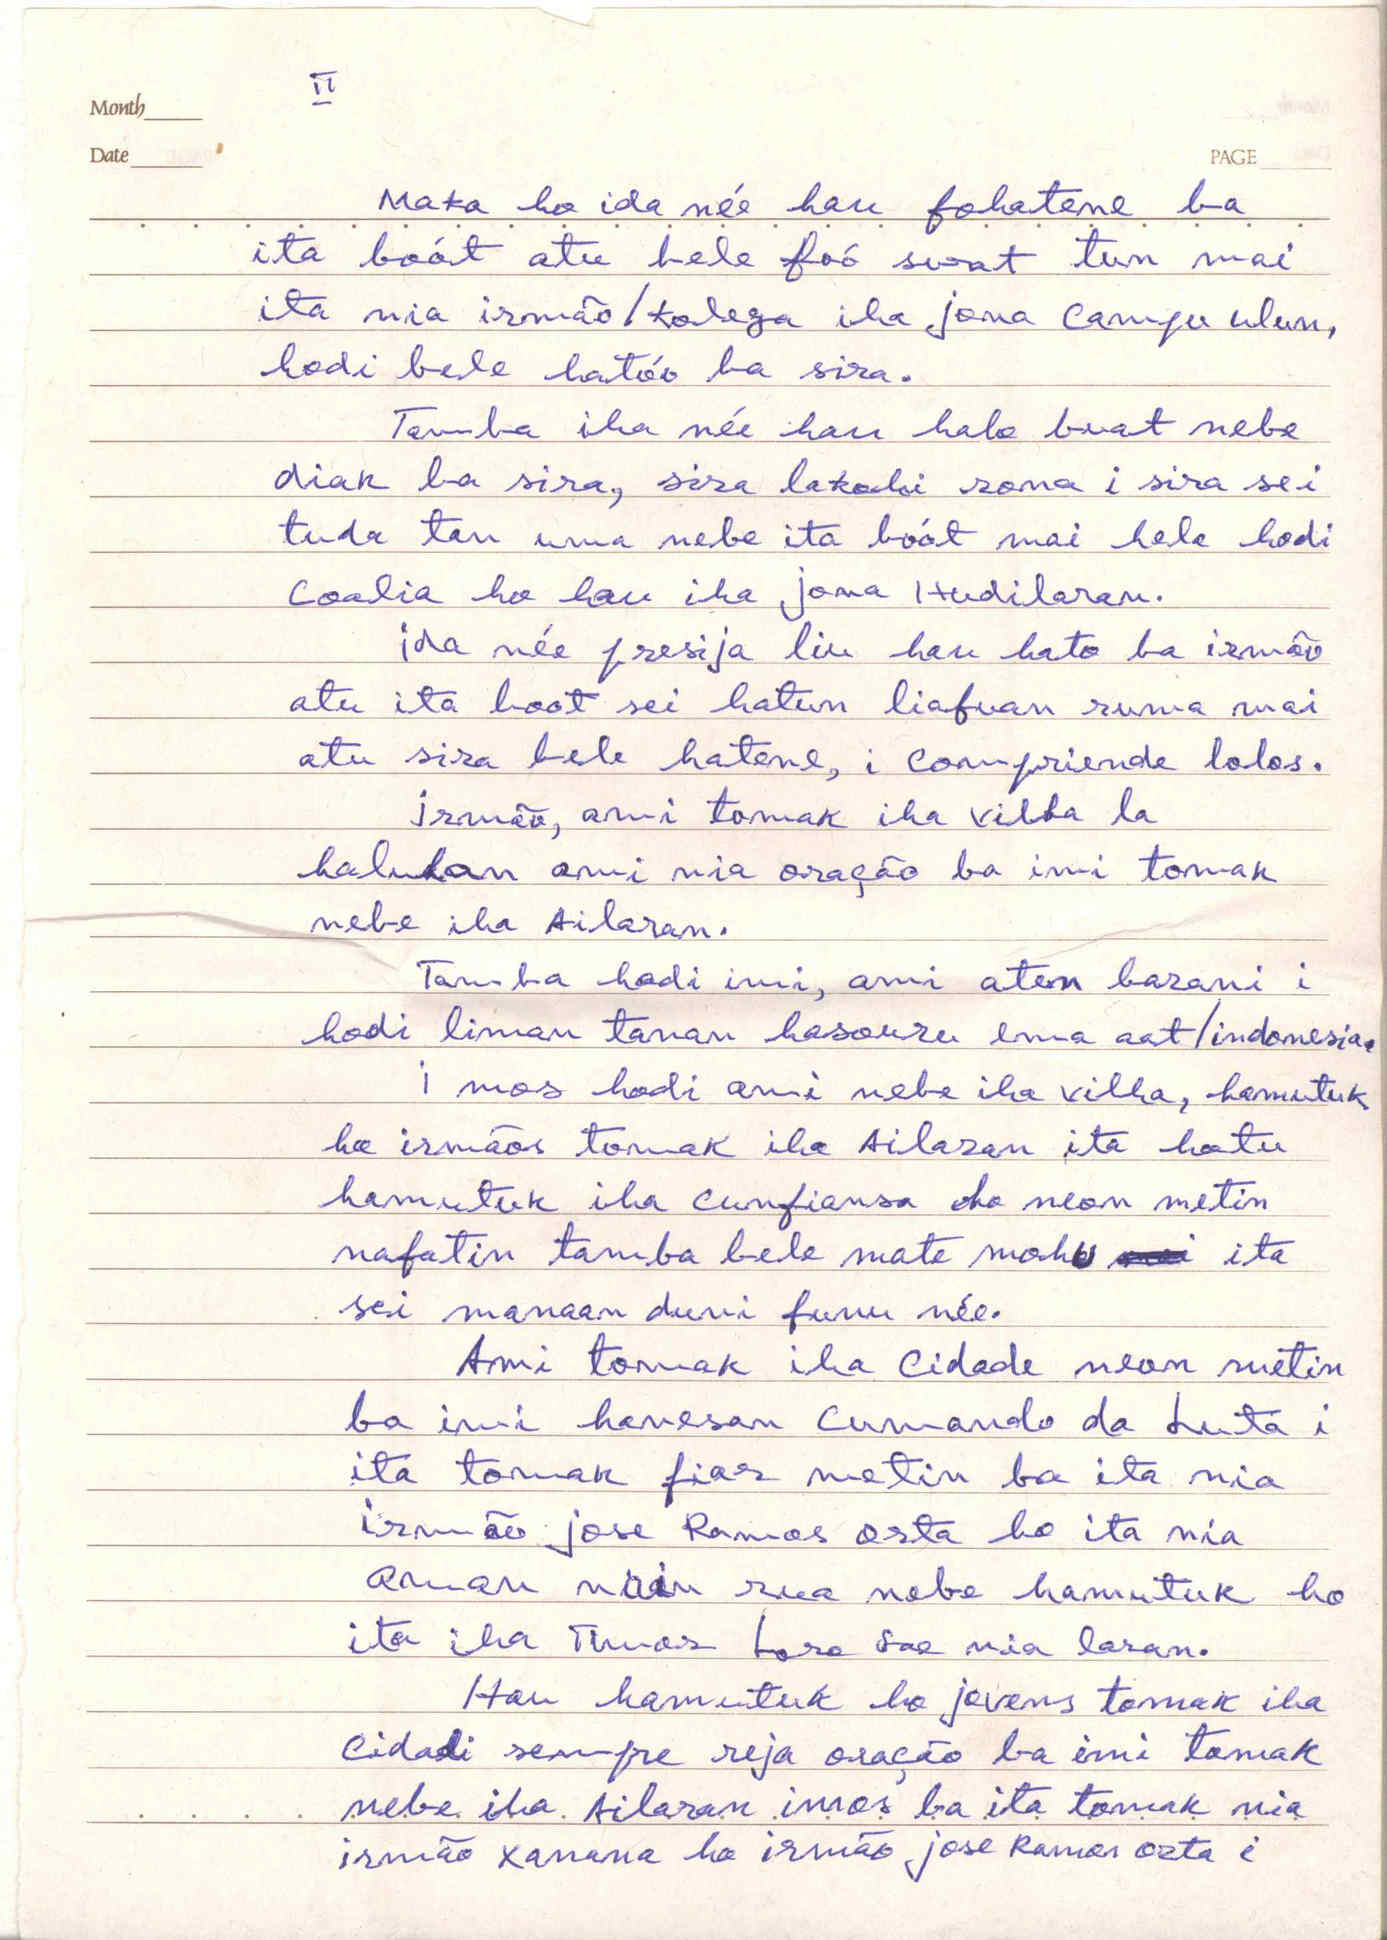 II
Month
Date
PAGE
Maka ho ida née hau fohatene ba
ita boót atu bele foó surat tun mai
ita nia irmão/kolega iha jona Campu ulun,
hodi bele hatóo ba sira.
Tamba iha née hau halo buat nebe
diak ba sira, sira lakohi rona i sira sei
tuda tan uma nebe ita boót mai hela hodi
Coalia ho hau iha jona Hudilaran.
ida née presija liu hau hato ba irmão
atu ita boot sei hatun liafuan ruma mai
atu sira bele hatene, i Compriende lolos.
irmão, ami tomak iha vilha la
haluhan ami nia oração ba imi tomak
nebe iha Ailaran.
Tamba hodi imi, ami aten barani i
hodi liman tanan hasouru ema aat/indonesia.
i mos hodi ami nebe iha vilha, hamutuk
ho irmãos tomak iha Ailaran ita hatu
hamutuk iha Cunfiansa ho neon metin
nafatin tamba bele mate mohu ita
sei manaan duni funu née.
Ami tomak iha Cidade neon metin
ba imi hanesan Cumando da Luta i
ita tomak fiar metin ba ita nia
irmão jose Ramos Orta ho ita nia
aman nain rua nebe hamutuk ho
ita iha Timor Loro Sae nia laran.
Hau hamutuk ho jovens tomak iha
Cidadi sempre reja oração ba imi tomak
nebe iha Ailaran imos ba ita tomak nia
irmão Xanana ho irmão jose Ramos Orta i